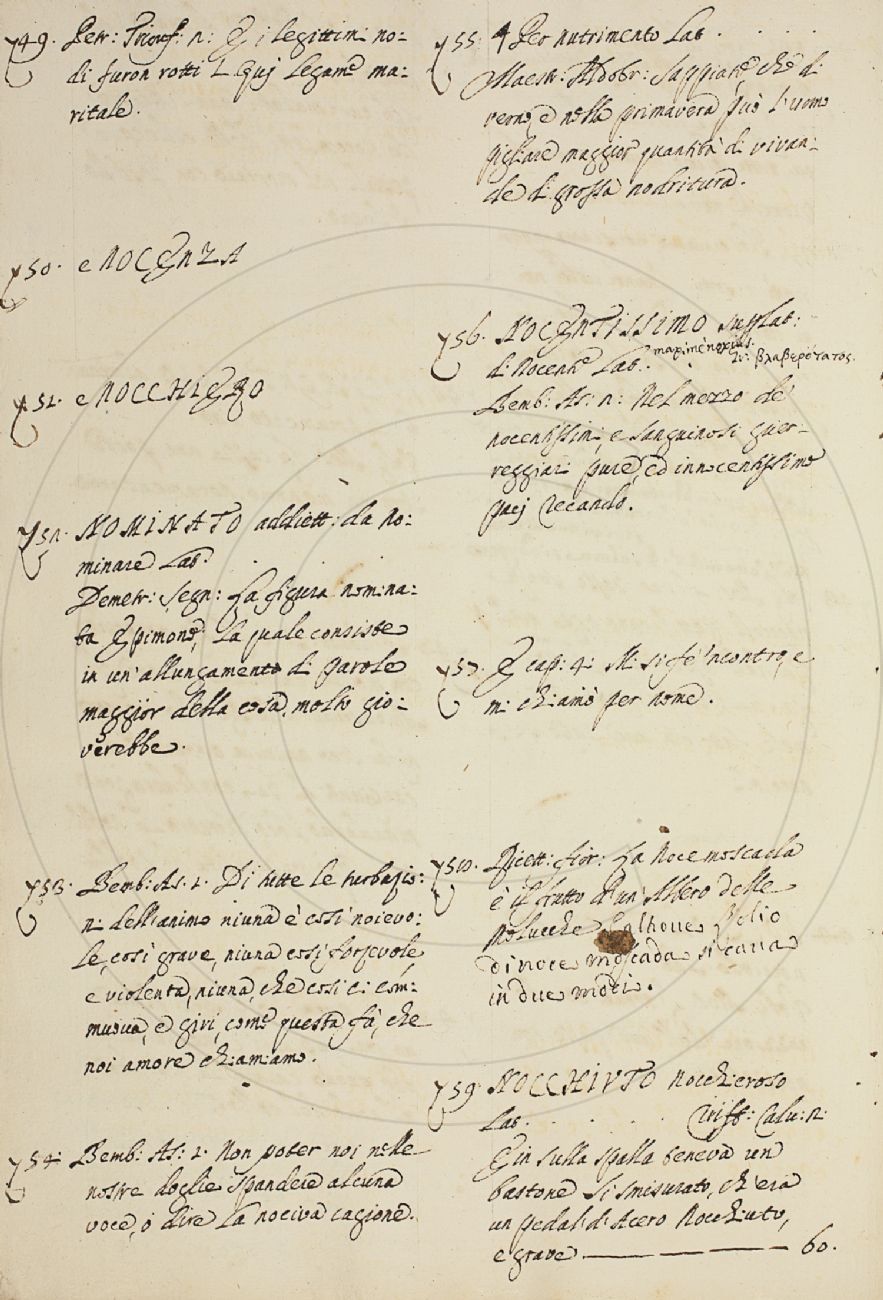 749. Petr: Triouf: n: E i legittimi no=
di furon rotti
ritale.
750. e NOCENZA
751. e NOCCHIERO
752. NOMINATO addiett: da no:
minare Lat. . .
Demetr: Segn: La figura nomina:
ta Epimone, la quale consiste
in un' allungamento di parole
maggior della cosa, molto gio=
verebbe.
753. Bemb: As. 1. Di tutte le turbazio:
ni dell'animo niuna è così noievo:
le, così grave, niuna così forzevole
e violenta, niuna, che così ci com:
muova, e giri, come questa fà, che
noi amore chiamiamo.
754. Bemb: As: 1. Non poter noi nelle
nostre doglie spandere alcuna
voce, ò dire la nociva cagione.
755. Per nutrimento Lat. . . . .
Maestr: Aldobr: Sappiate, che di
verno, e nella primavera può l'uomo
pigliare maggior quantità di vivan:
de di grossa nodritura.
756. NOCENTISSIMO superlat:
di Nocente Lat. maximè noxius. Gr: βλαβερώτατος.
Bemb: As: n: Nel mezzo de
nocentissimi, e sanguinosi guer=
reggiari pure, ed innocentissimo
recando.
757. E cap: 4: Mi si fe 'ncontro, e
mi chiamò per nome.
758. Ricett: Fior: La Noce moscada
è il frutto d'un' Albero delle
Molucche E altrove L'olio
di noce moscada si cava
in due modi.
759. NOCCHIUTO Nocchieroso
Lat. . . . . . Criff: Calv: n:
E in sulla spalla teneva un
bastone sì smisurato, ch'era
un pedal di Acero Nocchiuto,
e grave ——— 60.